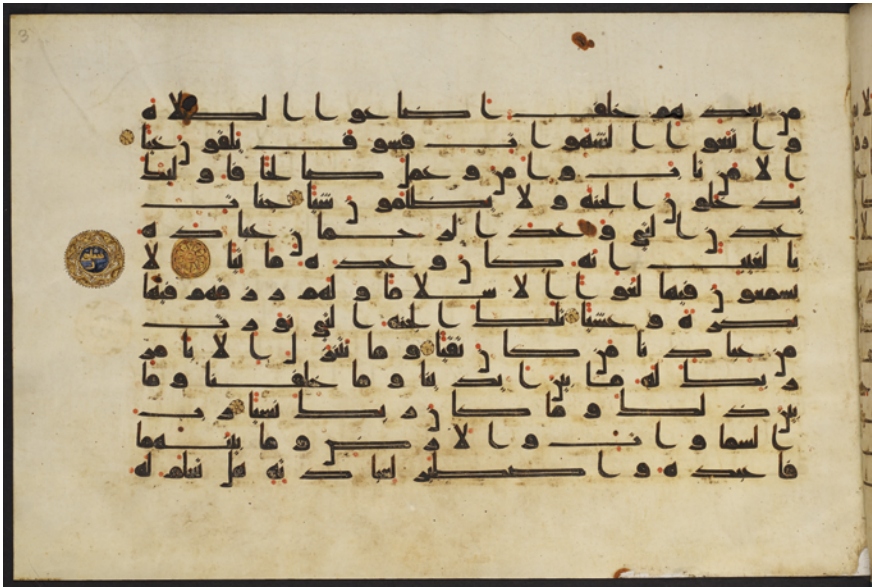 من بعدهم خلف اضاعوا الصلوه
واتبعوا الشهوات فسوف يلقون غيا
الا من تاب وامن وعمل صالحا فاولئك
يدخلون الجنه ولا يظلمون شيئا جنات
عدن التي وعد الرحمن عباده
بالغيب انه كان وعده ماتيا لا
يسمعون فيها لغوا الا سلاما ولهم رزقهم فيها
بكره وعشيا تلك الجنه التي نورث
من عبادنا من كان تقيا وما نتنزل الا بامر
ربك له ما بين ايدينا وما خلفنا وما
بين ذلك وما كان ربك نسيا رب
السموات والارض وما بينهما
فاعبده واصطبر لعبادته هل تعلم له